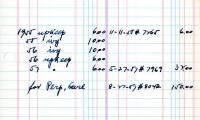 1955 upkeep 6.00 11-11-55 # 7765 6.00
55 ivy 10.00
56 ivy 10.00
56 upkeep 6.00
57 " 6.00 5-27-57 # 7969 32.00
for Perp. Care 8-27-57 # 8042 150.00